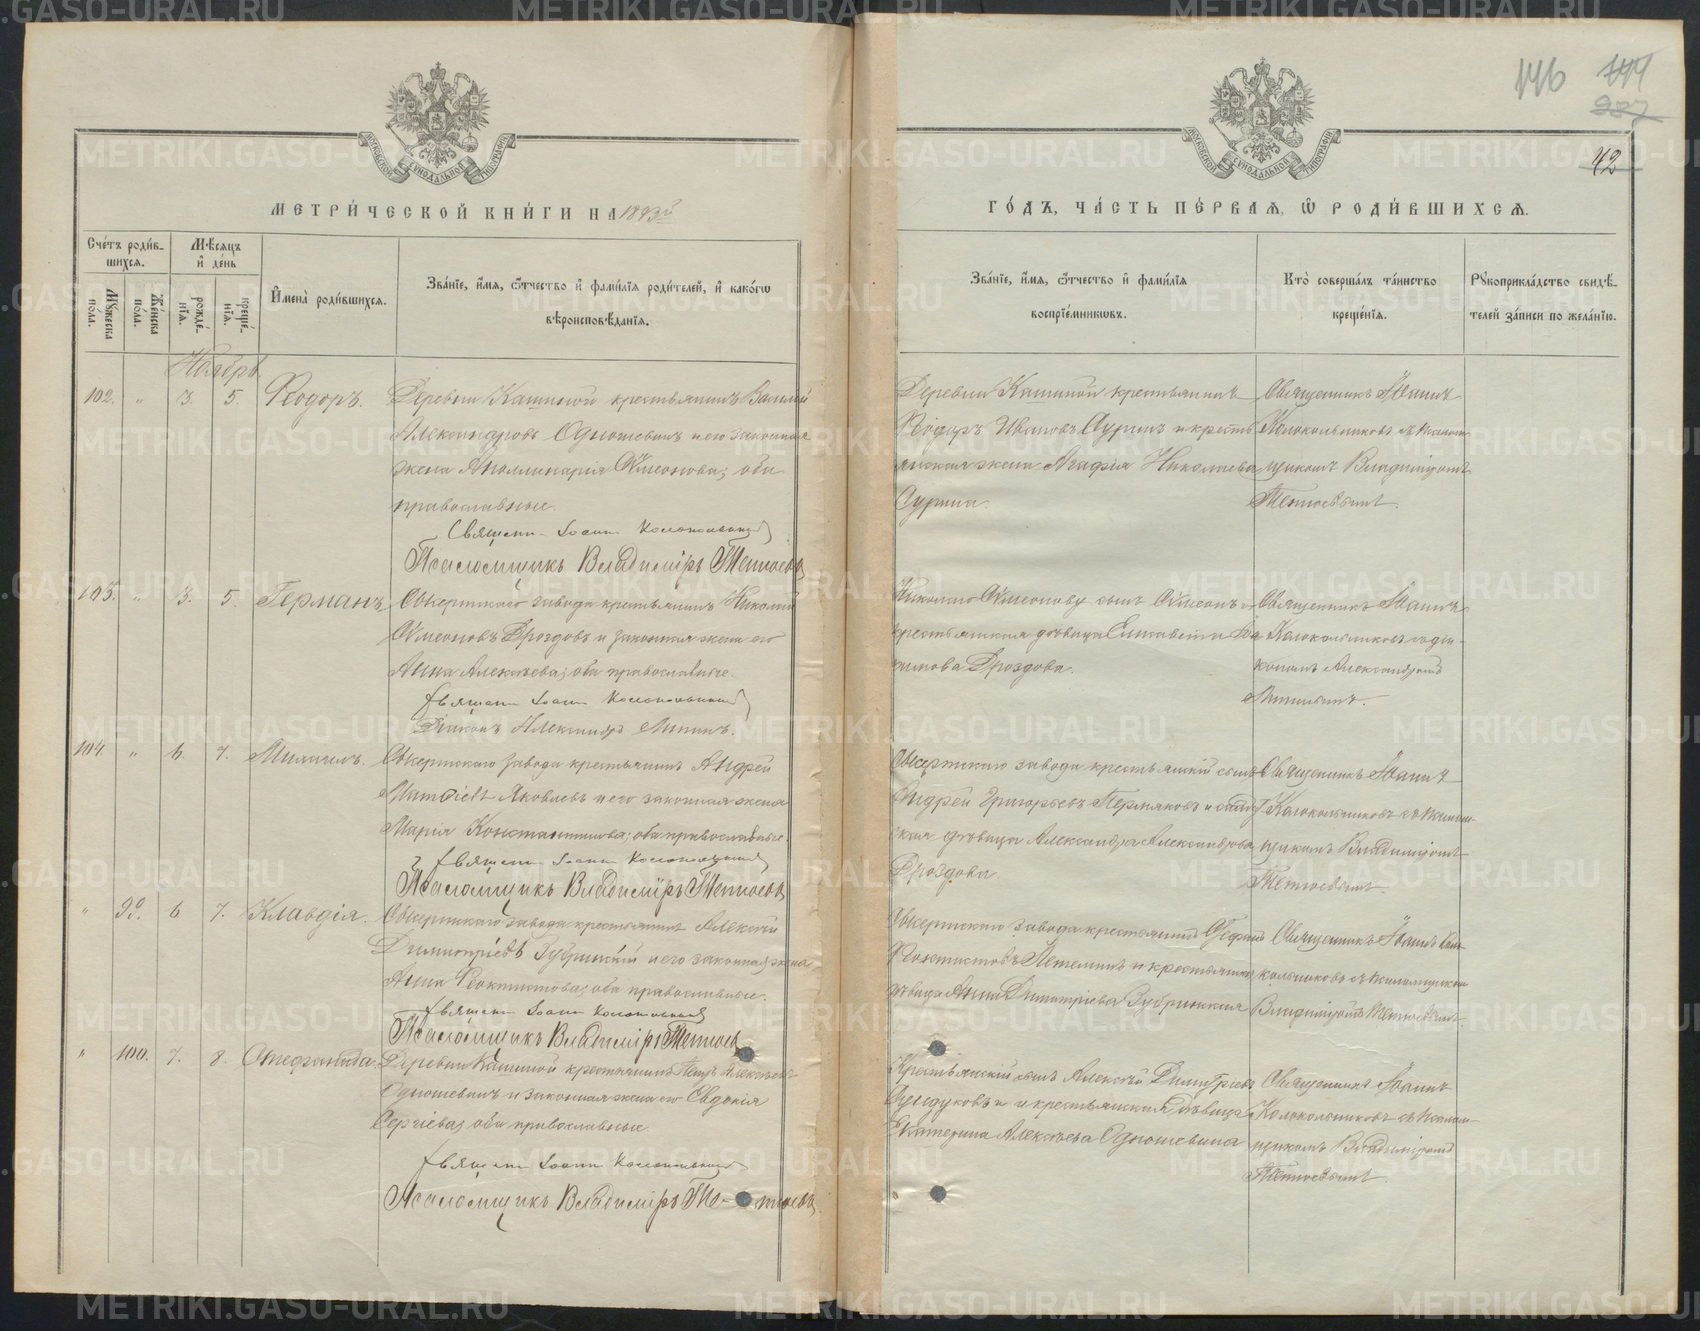 146 144
287
42
МОСКОВСКОЙ СѴНОДАЛЬНОЙ ТИПОГРАФІИ
МОСКОВСКОЙ СѴНОДАЛЬНОЙ ТИПОГРАФІИ
МЕТРИ́ЧЕСКОЙ КНИ́ГИ НА 1893й
ГО́ДЪ, ЧА́СТЬ ПЕ́РВАЯ, Ѡ РОДИ́ВШИХСЯ.
Сче́тъ роди́в-
шихся.
Му́жеска по́ла.
Же́нска по́ла.
Мѣ́сяцъ
и де́нь
рожде́-
нїя.
креще́-
нїя.
И҆мена̀ роди́вшихся.
Зва́нїе, и҆́мя, ѻ҆́тчество и҆ фами́лїя роди́телей, и҆ како́гѡ
вѣроисповѣ́данїя.
Зва́нїе, и҆́мя, ѻ҆́тчество и҆ фами́лїя
воспрїе́мникѡвъ.
Кто̀ соверша́лъ та́инство
креще́нїя.
Рꙋкоприкла́дство свидѣ́-
телей за́писи по жела́нїю.
Ноябрь
102. " 3. 5. Ѳеодоръ.
Деревни Кашиной крестьянинъ Василий
Александровъ Одношевинъ и его законная
жена Аполлинарія Сѵмеонова; оба
православные.
Священ. Іоаннъ Колокольников
Псаломщикъ Владиміръ Тетюевъ
Деревни Кашиной крестьянинъ
Ѳеодоръ Ивановъ Суринъ и кресть
янская жена Агафія Николаева
Сурина.
Священникъ Іоаннъ
Колокольниковъ съ псалом
щикомъ Владиміромъ
Тетюевымъ.
103. " 3. 5. Германъ.
Сысертскаго завода крестьянинъ Николай
Сѵмеоновъ Дроздовъ и законная жена его
Анна Алексѣева; оба православные.
Священ Іоаннъ Колокольников
Діаконъ Александръ
Николаю Сѵмеонову сынъ Сѵмеонъ и
крестьянская дѣвица Елисавета
Дроздова.
Священникъ Іоаннъ
Колокольниковъ съ діа-
кономъ Александромъ
104 " 6. 7. Михаилъ.
Сысертскаго завода крестьянинъ Андрей
Матѳіевъ Яковлевъ и его законная жена
Марія Константинова; оба православные.
Священ Іоаннъ Колокольников
Псаломщикъ Владиміръ Тетюевъ
Сысертскаго завода крестьянскій сынъ
Андрей Григорьевъ Пермяковъ и
ская дѣвица Александра Александрова
Дроздова
Священникъ Іоаннъ
Колокольниковъ съ псалом
щикомъ Владиміромъ
Тетюевымъ.
" 99. 6 7. Клавдія.
Сысертскаго завода крестьянинъ Алексѣй
Димитріевъ Зубринскій и его законная жена
Анна Ѳеоктистова; оба православные.
Священ Іоаннъ Колокольников
Псаломщикъ Владиміръ Тетюевъ
Сысертскаго завода крестьянинъ Стефанъ
Ѳеоктистовъ и крестьянская
дѣвица Анна Димитріева Зубринская
Священникъ Іоаннъ Коло
кольниковъ съ псаломщикомъ
Владиміромъ Тетюевымъ.
" 100. 7. 8. Стефанида.
Деревни Кашиной крестьянинъ Петръ Алексѣевъ
Одношевинъ и законная жена его Евдокія
Сергіева; оба православные.
Священ Іоаннъ Колокольников
Псаломщикъ Владиміръ Те-тюевъ
Крестьянскій сынъ Алексѣй Димитріевъ
и крестьянская дѣвица
Екатерина Алексѣева Одношевина
Священникъ Іоаннъ
Колокольниковъ съ псалом-
щикомъ Владиміромъ
Тетюевымъ.
METRIKI.GASO-URAL.RU